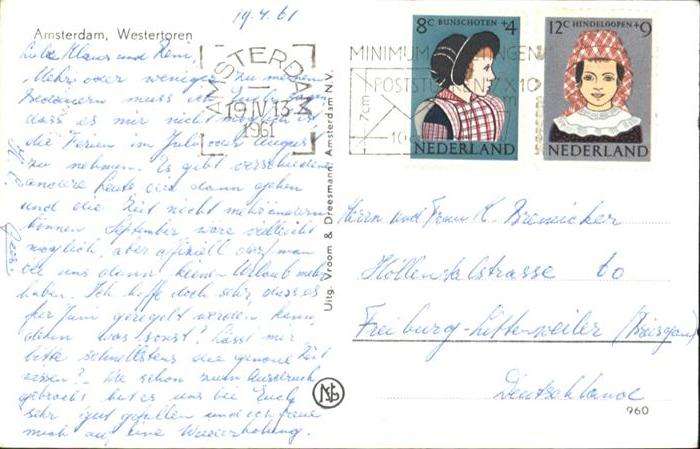 19.4.61
Amsterdam, Westertoren
8c BUNSCHOTEN +4
12c HINDELOOPEN +9
NEDERLAND
NEDERLAND
AMSTERDAM
19 IV 13
1961
MINIMUM
POSTSTUKKEN 7 X 10
7cm
Liebe Klaus und
Mehr oder weniger zu meinem
Bedauern muss ich
dass es mir nicht möglich ist
die Ferien im Juli oder August
zu nehmen. Es gibt verschiedene
andere Leute die dann gehen
und die Zeit nicht mehr ändern
können. September wäre vielleicht
möglich, aber offiziell darf man
bei uns dann keinen Urlaub mehr
haben. Ich hoffe doch sehr, dass es
für Juni geregelt werden kann,
denn was sonst? Lasst mir
bitte schnellstens die genaue Zeit
wissen! Wie schon zum Ausdruck
gebracht hat es uns bei Euch
sehr gut gefallen und ich freue
mich auf eine Wiederholung.
Uitg. Vroom & Dreesmann, Amsterdam N.V.
Herrn und Frau K.
Höllentalstrasse 60
Freiburg-Littenweiler (Breisgau)
Deutschland
960